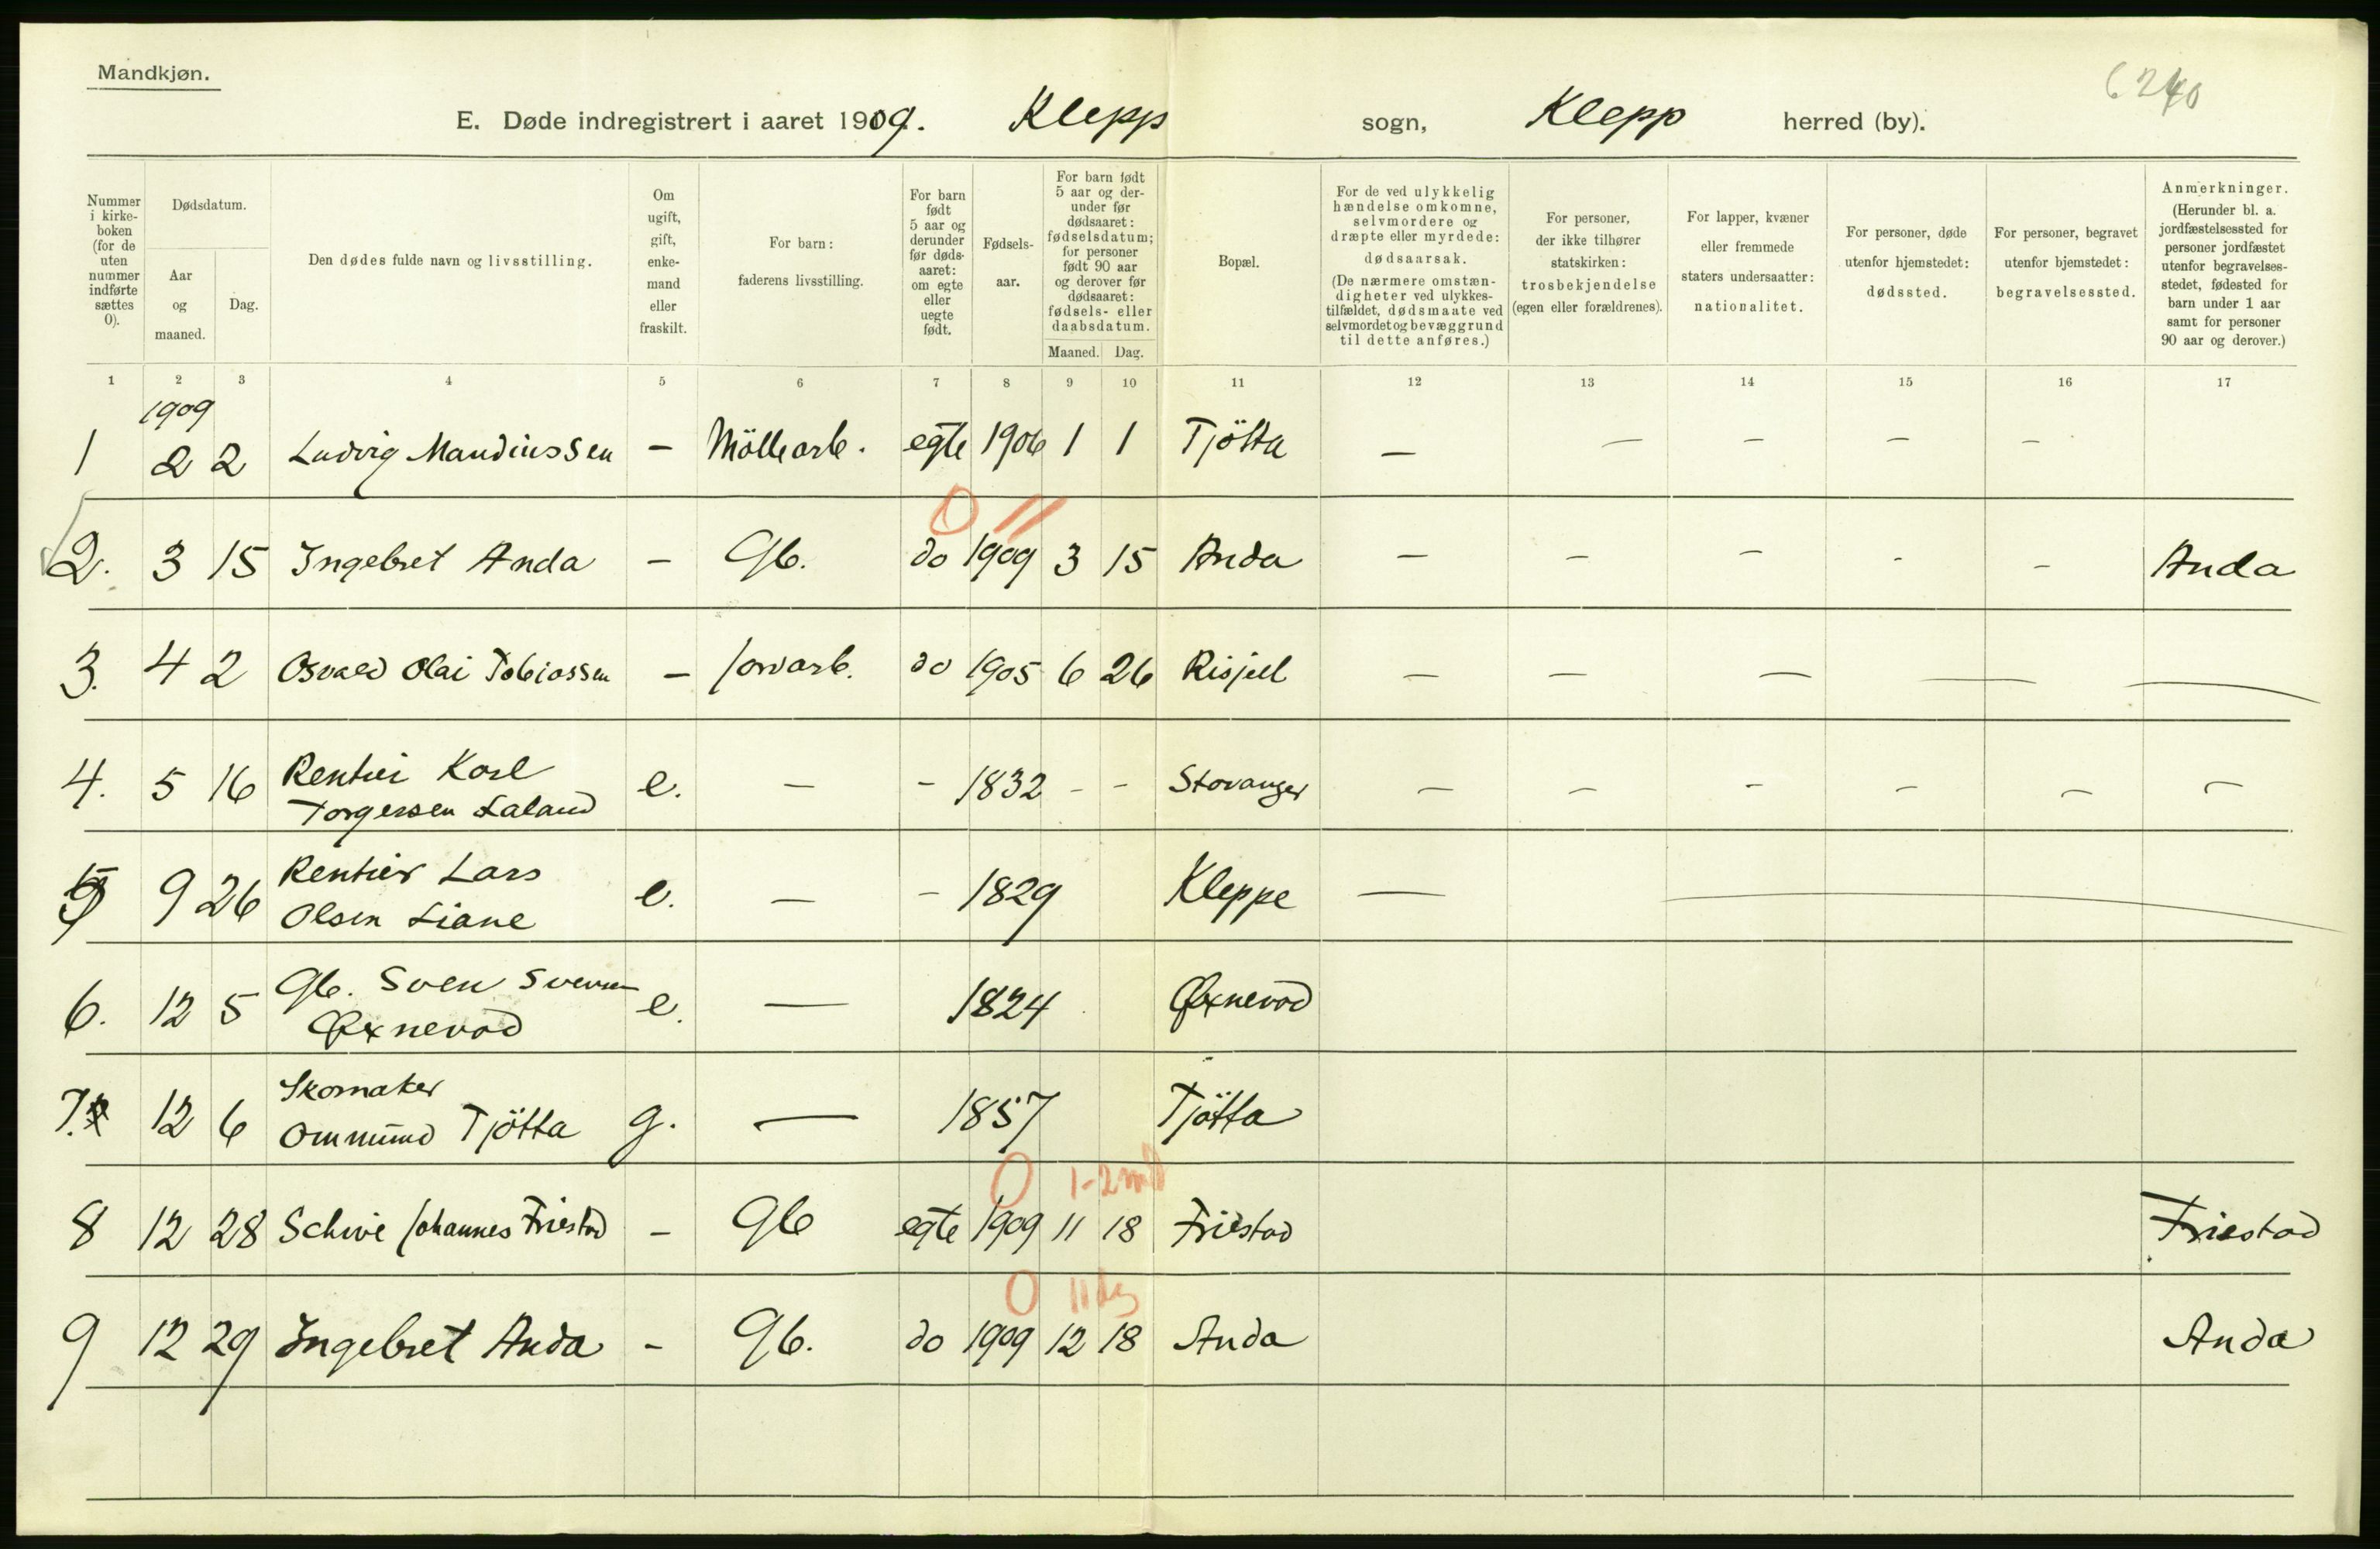 Mandkjøn.
6240
E. Døde indregistrert i aaret 1909. Klepp sogn, Klepp herred (by).
Nummer i kirke-boken (for de uten nummer indførte sættes 0).
Dødsdatum.
Aar og maaned.
Dag.
Den dødes fulde navn og livsstilling.
Om ugift, gift, enke-mand eller fraskilt.
For barn: faderens livsstilling.
For barn født 5 aar og derunder før døds-aaret: om egte eller uegte født.
Fødsels-aar.
For barn født 5 aar og der-under før dødsaaret: fødselsdatum; for personer født 90 aar og derover før dødsaaret: fødsels- eller daabsdatum.
Maaned. Dag.
Bopæl.
For de ved ulykkelig hændelse omkomne, selvmordere og dræpte eller myrdede: dødsaarsak. (De nærmere omstæn-digheter ved ulykkes-tilfældet, dødsmaate ved selvmordet og bevæggrund til dette anføres.)
For personer, der ikke tilhører statskirken: trosbekjendelse (egen eller forældrenes).
For lapper, kvæner eller fremmede staters undersaatter: nationalitet.
For personer, døde utenfor hjemstedet: dødssted.
For personer, begravet utenfor hjemstedet: begravelsessted.
Anmerkninger. (Herunder bl. a. jordfæstelsessted for personer jordfæstet utenfor begravelses-stedet, fødested for barn under 1 aar samt for personer 90 aar og derover.)
1 2 3 4 5 6 7 8 9 10 11 12 13 14 15 16 17
1909
1 2 2 Ludvig Mandiussen - Möllearb. egte 1906 1 1 Tjötta - - - - -
0 11
2. 3 15 Ingebret Anda - Gb. do 1909 3 15 Anda - - - - - Anda
3. 4 2 Osvald Olai Tobiassen - Jorvarb. do 1905 6 26 Risjell - - - - -
4. 5 16 Rentier Karl Torgersen Laland e. - - 1832 - - Stavanger - - - - - -
5 9 26 Rentier Lars Olsen Liane e. - - 1829 Kleppe - -
6. 12 5 Gb. Sven Svensen Øxnevad e. - 1824 Øxnevad
7. 12 6 Skomaker Ommund Tjötta g. - 1857 Tjötta
0 1-2 md
8 12 28 Schive Johannes Friestad - Gb egte 1909 11 18 Friestad Friestad
0 11 dg
9 12 29 Ingebret Anda - Gb. do 1909 12 18 Anda Anda